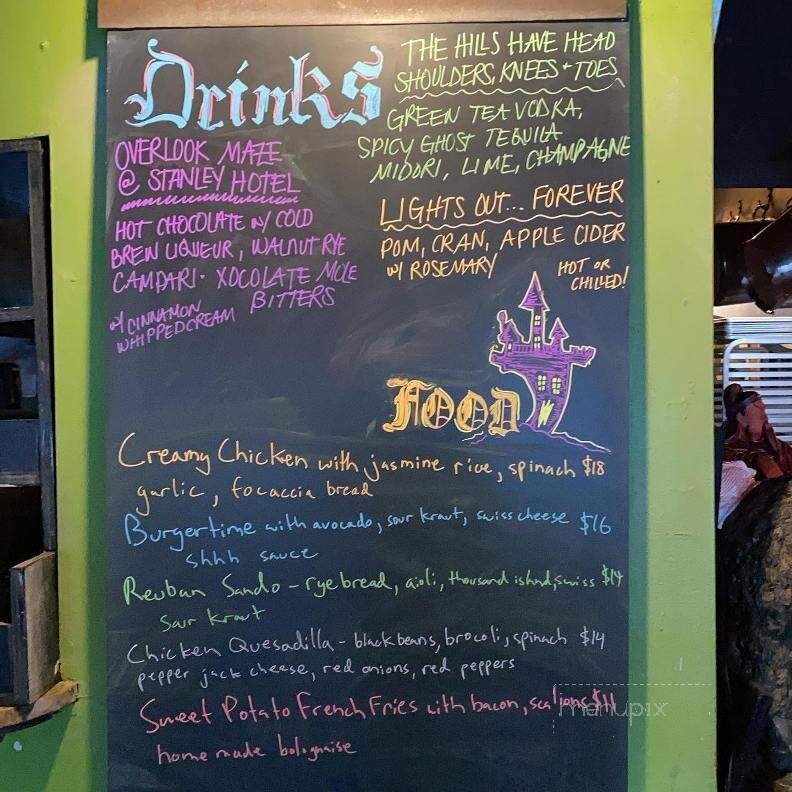 Drinks
OVERLOOK MAZE
@ STANLEY HOTEL
HOT CHOCOLATE W/ COLD
BREW LIQUEUR, WALNUT RYE
CAMPARI · XOCOLATE MOLE
BITTERS
W/ CINNAMON
WHIPPED CREAM
THE HILLS HAVE HEAD
SHOULDERS, KNEES + TOES
GREEN TEA VODKA,
SPICY GHOST TEQUILA
MIDORI, LIME, CHAMPAGNE
LIGHTS OUT... FOREVER
POM, CRAN, APPLE CIDER
W/ ROSEMARY
HOT OR
CHILLED!
FOOD
Creamy Chicken with jasmine rice, spinach $18
garlic, focaccia bread
Burgertime with avocado, sour kraut, swiss cheese $16
shhh sauce
Reuban Sando - rye bread, aioli, thousand island, swiss $14
sour kraut
Chicken Quesadilla - black beans, brocoli, spinach $14
pepper jack cheese, red onions, red peppers
Sweet Potato French Fries with bacon, scalions $11
home made bolignaise
menupix